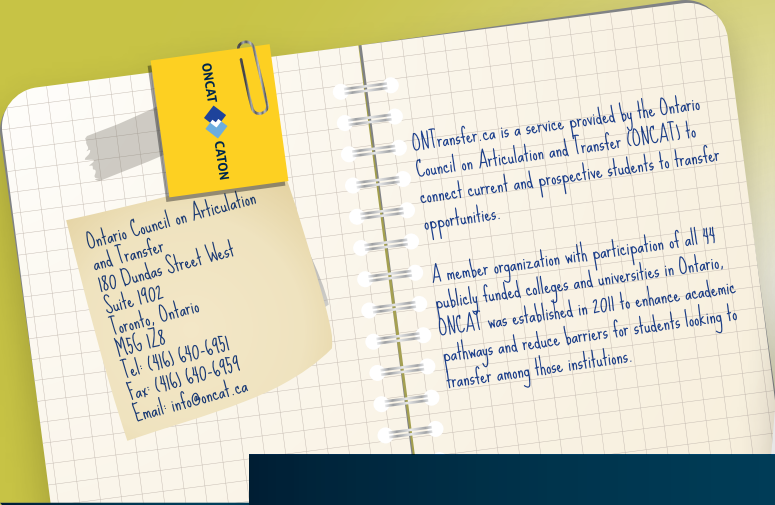 ONCAT
CATON
Ontario Council on Articulation
and Transfer
180 Dundas Street West
Suite 1902
Toronto, Ontario
M5G 1Z8
Tel: (416) 640-6951
Fax: (416) 640-6959
Email: info@oncat.ca
ONTransfer.ca is a service provided by the Ontario
Council on Articulation and Transfer (ONCAT) to
connect current and prospective students to transfer
opportunities.
A member organization with participation of all 44
publicly funded colleges and universities in Ontario,
ONCAT was established in 2011 to enhance academic
pathways and reduce barriers for students looking to
transfer among those institutions.